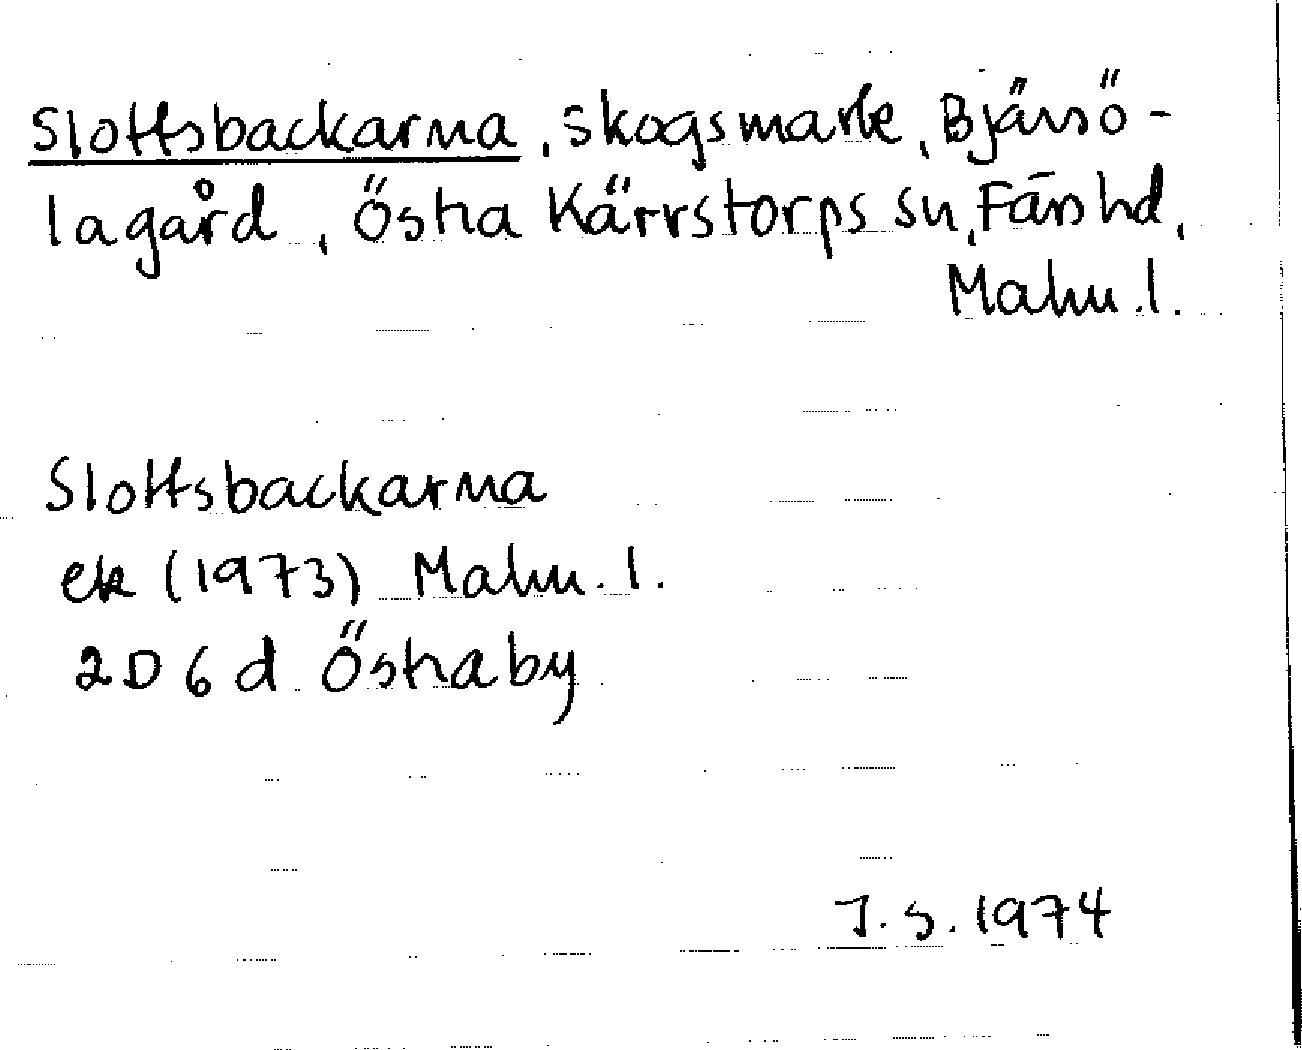 Slottsbackarna, skogsmark, Bjärsö-
lagård, Östra Kärrstorps sn, Färs hd,
Malm. l.
Slottsbackarna
ek (1973) Malm. l.
2D 6 d Östraby
J. S. 1974